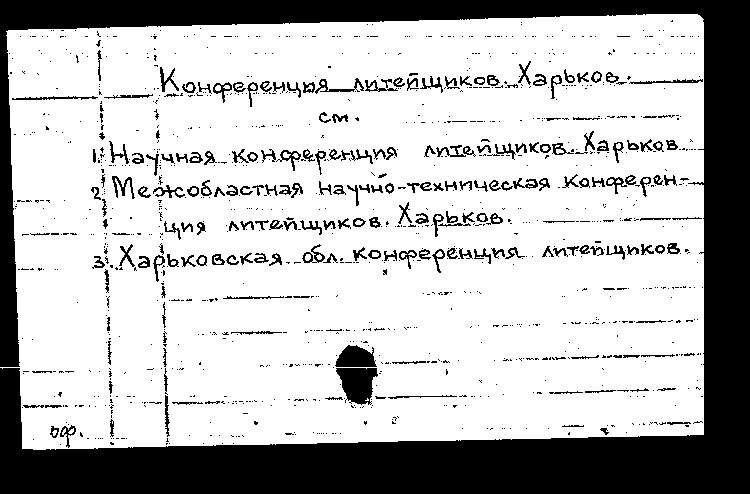 Конференция литейщиков. Харьков.
см.
1. Научная конференция литейщиков. Харьков
2. Межобластная научно-техническая конферен-
ция литейщиков. Харьков.
3. Харьковская обл. конференция литейщиков.